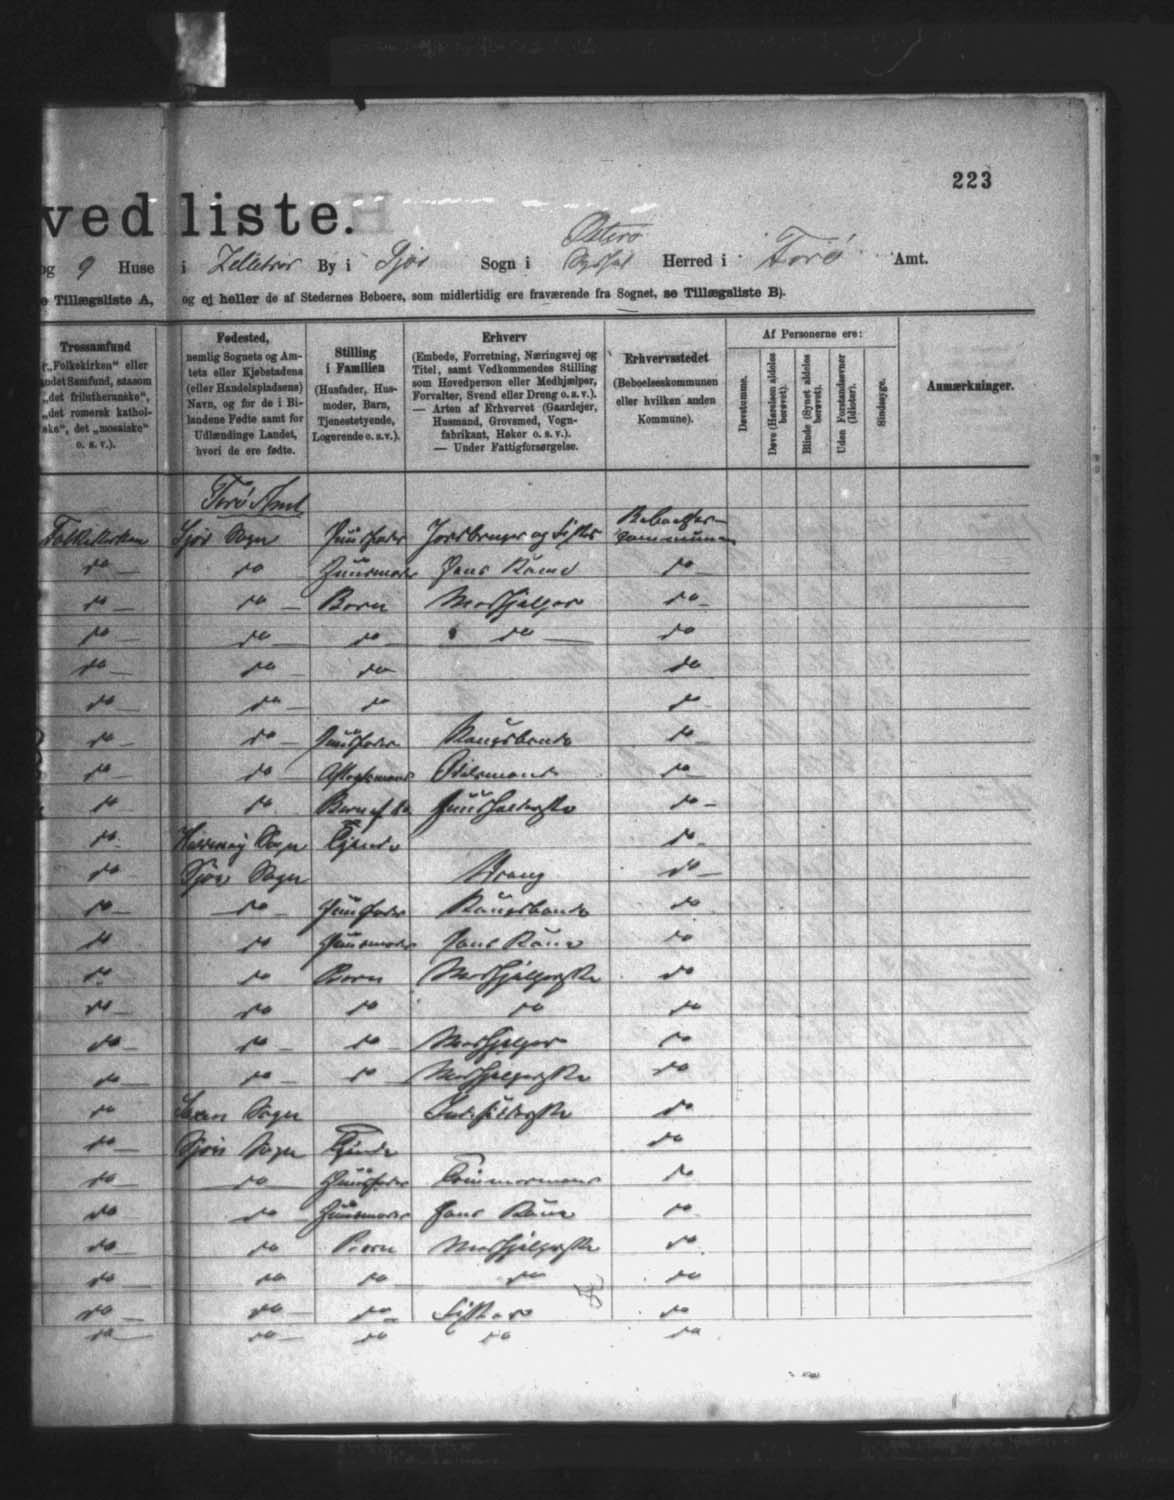 223
ved liste.
Østerø
og 9 Huse i By i Sjóv Sogn i Syssel Herred i Færø Amt.
e Tillægsliste A, og ej heller de af Stedernes Beboere, som midlertidig ere fraværende fra Sognet, se Tillægsliste B).
Trossamfund
(„Folkekirken“ eller
andet Samfund, saasom
„det frilutheranske“,
„det romersk kathol-
ske“, det „mosaiske“
o. s. v.).
Fødested,
nemlig Sognets og Am-
tets eller Kjøbstadens
(eller Handelspladsens)
Navn, og for de i Bi-
landene Fødte samt for
Udlændinge Landet,
hvori de ere fødte.
Stilling
i Familien
(Husfader, Hus-
moder, Barn,
Tjenestetyende,
Logerende o. s. v.).
Erhverv
(Embede, Forretning, Næringsvej og
Titel, samt Vedkommendes Stilling
som Hovedperson eller Medhjælper,
Forvalter, Svend eller Dreng o. s. v.).
— Arten af Erhvervet (Gaardejer,
Husmand, Grovsmed, Vogn-
fabrikant, Høker o. s. v.).
— Under Fattigforsørgelse.
Erhvervsstedet
(Beboelseskommunen
eller hvilken anden
Kommune).
Af Personerne ere:
Døvstumme.
Døve (Hørelsen aldeles
berøvet).
Blinde (Synet aldeles
berøvet).
Uden Forstandsevner
(Idioter).
Sindssyge.
Anmærkninger.
Færø Amt
Folkekirken Sjóv Sogn Huusfader Jordbruger og Fisker
do do Huusmoder Hans Kone do
do do Barn Medhjælper do
do do do do do
do do do do
do do do do
do do Huusfader Kongsbonde do
do do Aftægtsmand Odelsmand do
do do Barn af do Huusholderske do
do Sogn Tyende do
do Sjóv Sogn Dreng do
do do Huusfader Kongsbonde do
do do Huusmoder Hans Kone do
do do Barn Medhjælperske do
do do do do do
do do do Medhjælper do
do do do Medhjælperske do
do Sogn Indsidderske do
do Sjóv Sogn Tyende do
do do Huusfader Tømmermand do
do do Huusmoder Hans Kone do
do do Barn Medhjælperske do
do do do do do
do do do Fisker do
do do do do do